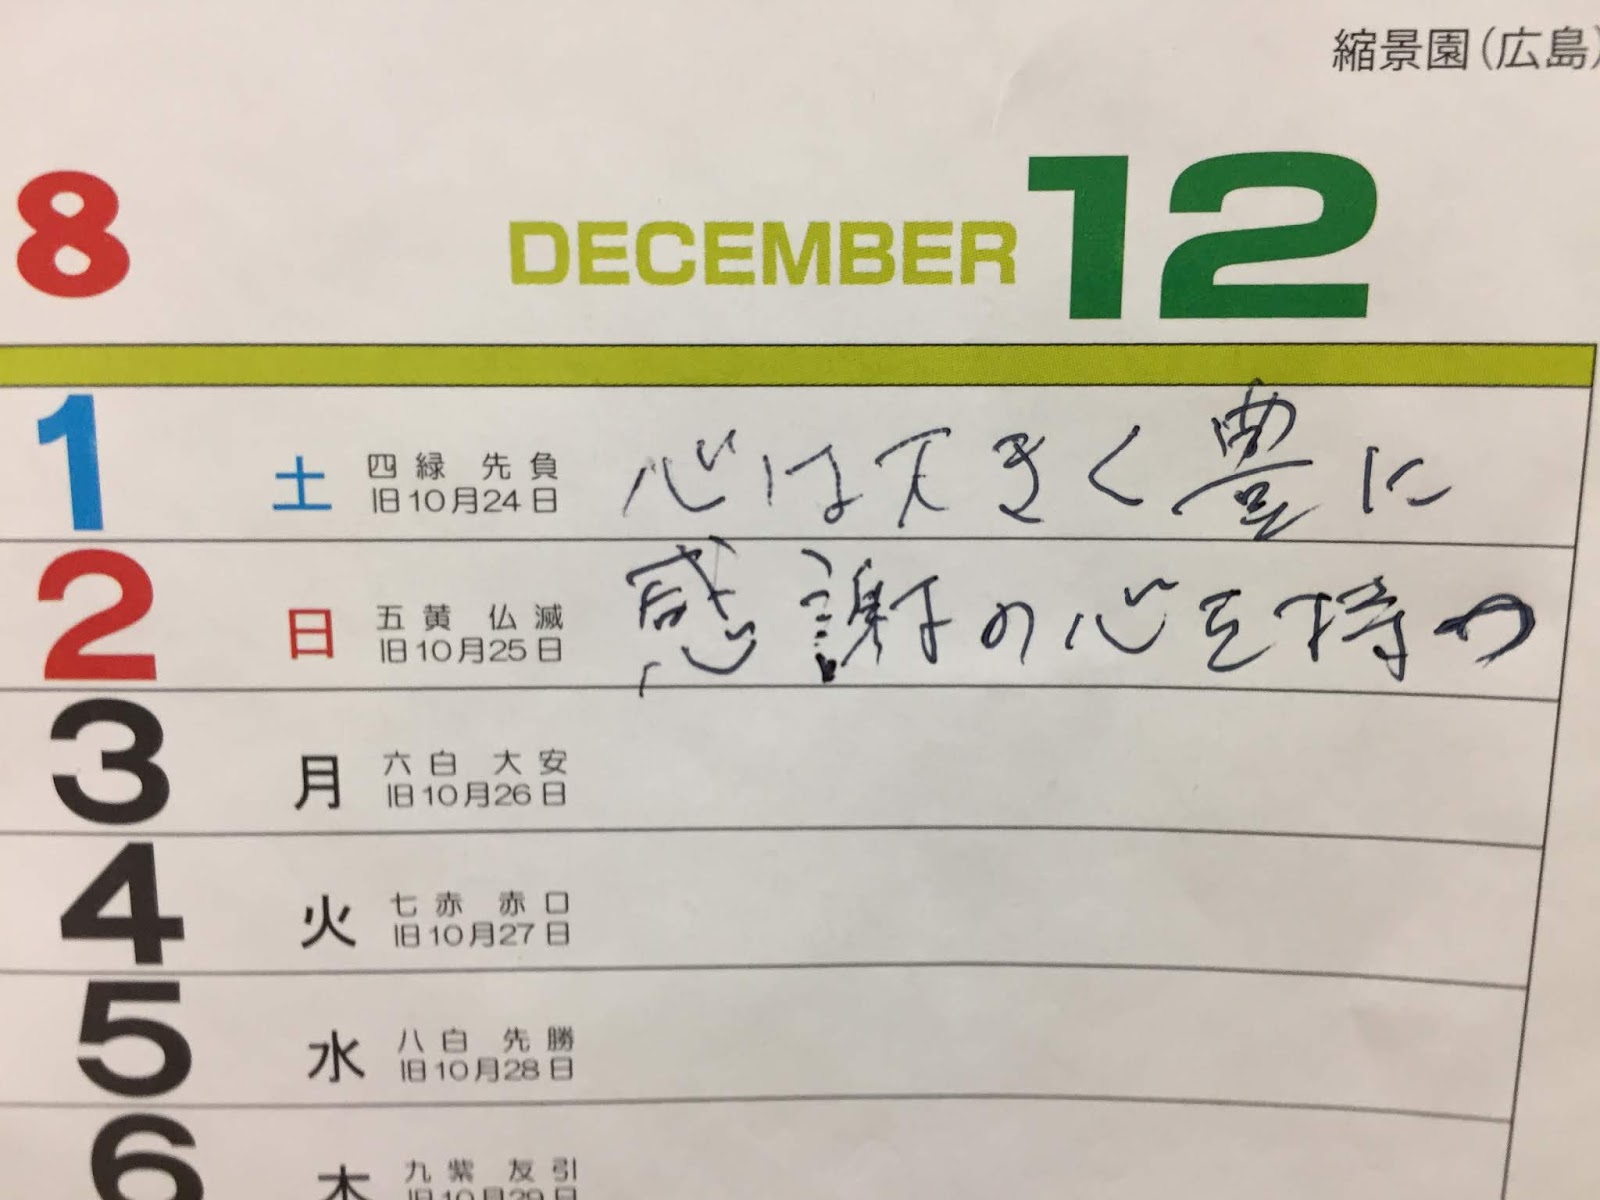 縮景園(広島)
8 DECEMBER 12
1 土 四緑 先負 心は大きく豊に
旧10月24日
2 日 五黄 仏滅 感謝の心を持つ
旧10月25日
3 月 六白 大安
旧10月26日
4 火 七赤 赤口
旧10月27日
5 水 八白 先勝
旧10月28日
6 木 九紫 友引
旧10月29日